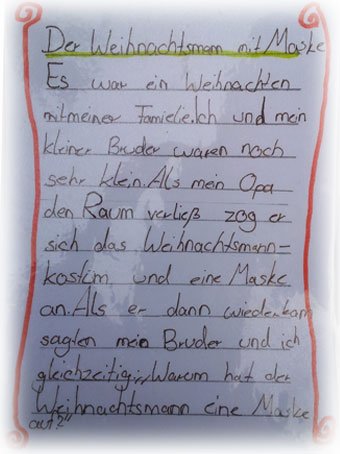 Der Weihnachtsmann mit Maske
Es war ein Weihnachten
mit meiner Famielie. Ich und mein
kleiner Bruder waren noch
sehr klein. Als mein Opa
den Raum verließ zog er
sich das Weihnachtsmann-
kostüm und eine Maske
an. Als er dann wiederkam
sagten mein Bruder und ich
gleichzeitig: „Warum hat der
Weihnachtsmann eine Maske
auf?“